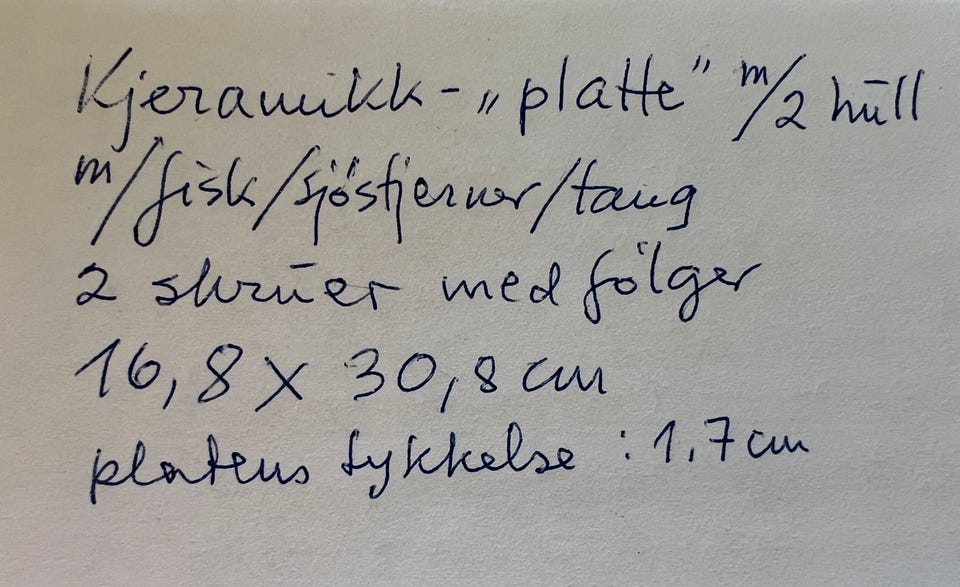 Kjeramikk-„platte” m/2 hūll
m/fisk/sjöstjerner/tang
2 skrūer medfölger
16,8 x 30,8 cm
platens tykkelse : 1,7 cm